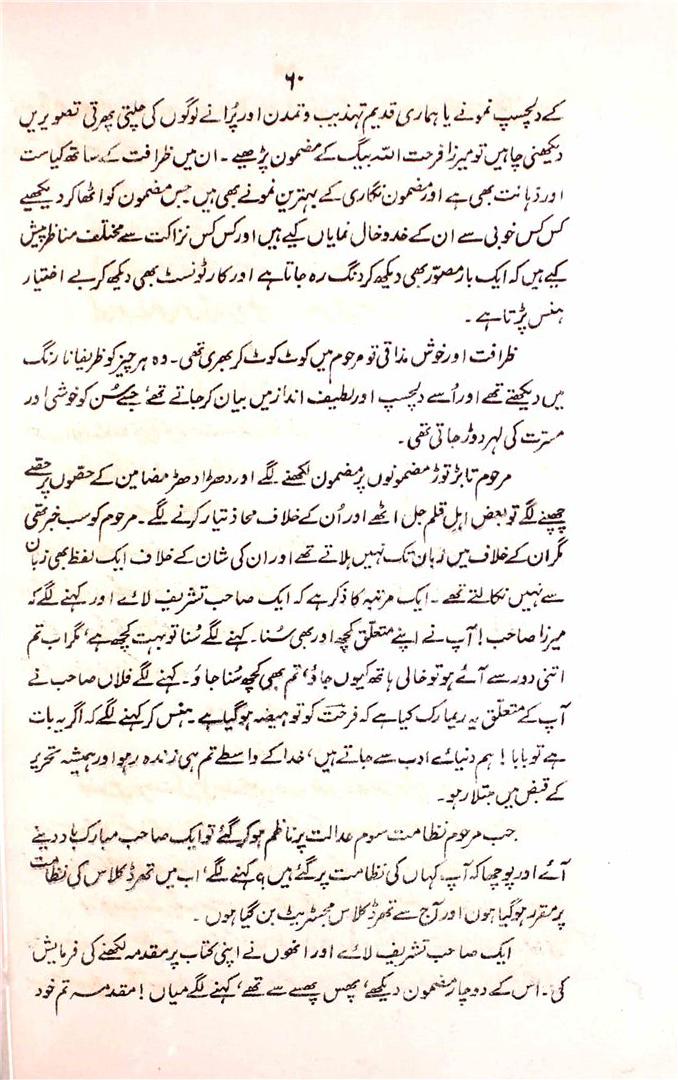 ۶۰
کے دلچسپ نمونے یا ہماری قدیم تہذیب و تمدن اور پُرانے لوگوں کی چلتی پھرتی تصویریں
دیکھنی چاہیں تو میرزا فرحت اللہ بیگ کے مضمون پڑھیے ۔ ان میں ظرافت کے ساتھ کیاست
اور ذہانت بھی ہے اور مضمون نگاری کے بہترین نمونے بھی ہیں جس مضمون کو اٹھا کر دیکھیے
کس کس خوبی سے ان کے خدوخال نمایاں کیے ہیں اور کس کس نزاکت سے مختلف مناظر پیش
کیے ہیں کہ ایک بار مصوّر بھی دیکھ کر دنگ رہ جاتا ہے اور کارٹونسٹ بھی دیکھ کر بے اختیار
ہنس پڑتا ہے ۔
ظرافت اور خوش مذاقی تو مرحوم میں کوٹ کوٹ کر بھری تھی ۔ وہ ہر چیز کو ظریفانا رنگ
میں دیکھتے تھے اور اُسے دلچسپ اور لطیف انداز میں بیان کر جاتے تھے، جسے سُن کو خوشی اور
مسرّت کی لہر دوڑ جاتی تھی ۔
مرحوم تابڑ توڑ مضمونوں پر مضمون لکھنے لگے اور دھڑا دھڑ مضامین کے حقوں پر حقے
چھپنے لگے تو بعض اہلِ قلم جل اٹھے اور اُن کے خلاف محاذ تیار کرنے لگے ۔ مرحوم کو سب خبر تھی
مگر ان کے خلاف میں زبان تک نہیں ہلاتے تھے اور ان کی شان کے خلاف ایک لفظ بھی زبان
سے نہیں نکالتے تھے ۔ ایک مرتبہ کا ذکر ہے کہ ایک صاحب تشریف لائے اور کہنے لگے کہ
میرزا صاحب! آپ نے اپنے متعلّق کچھ اور بھی سُنا ۔ کہنے لگے سُنا تو بہت کچھ ہے، مگر اب تم
اتنی دور سے آئے ہو تو خالی ہاتھ کیوں جاؤ، تم بھی کچھ سُنا جاؤ ۔ کہنے لگے فلاں صاحب نے
آپ کے متعلّق یہ ریمارک کیا ہے کہ فرحت کو تو ہیضہ ہوگیا ہے ۔ ہنس کر کہنے لگے کہ اگر یہ بات
ہے تو بابا! ہم دنیائے ادب سے جاتے ہیں، خدا کے واسطے تم ہی زندہ رہو اور ہمیشہ تحریر
کے قبض میں مبتلا رہو ۔
جب مرحوم نظامت سوم عدالت پر ناظم ہو کر گئے تو ایک صاحب مبارک باد دینے
آئے اور پوچھا کہ آپ کہاں کی نظامت پر گئے ہیں؟ کہنے لگے، اب میں تھرڈ کلاس کی نظامت
پر مقرر ہوگیا ہوں اور آج سے تھرڈ کلاس مجسٹریٹ بن گیا ہوں ۔
ایک صاحب تشریف لائے اور انھوں نے اپنی کتاب پر مقدمہ لکھنے کی فرمایش
کی ۔ اس کے دو چار مضمون دیکھے، پھس پھسے سے تھے، کہنے لگے میاں! مقدمہ تم خود